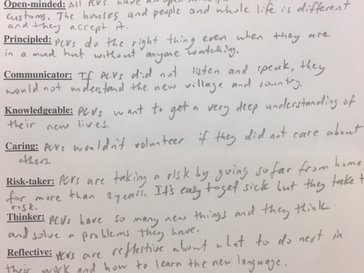 Open-minded: All PCVs have an open
customs. The houses and people and whole life is different
and they accept it.
Principled: PCVs do the right thing even when they are
in a mud hut without anyone watching.
Communicator: If PCVs did not listen and speak, they
would not understand the new village and country.
Knowledgeable: PCVs want to get a very deep understanding of
their new lives.
Caring: PCVs wouldn't volunteer if they did not care about
others.
Risk-taker: PCVs are taking a risk by going so far from home
for more than 2 years. It's easy to get sick but they take
risk.
Thinker: PCVs have so many new things and they think
and solve a problems they have.
Reflective: PCVs are reflective about what to do next in
their work and how to learn the new language.